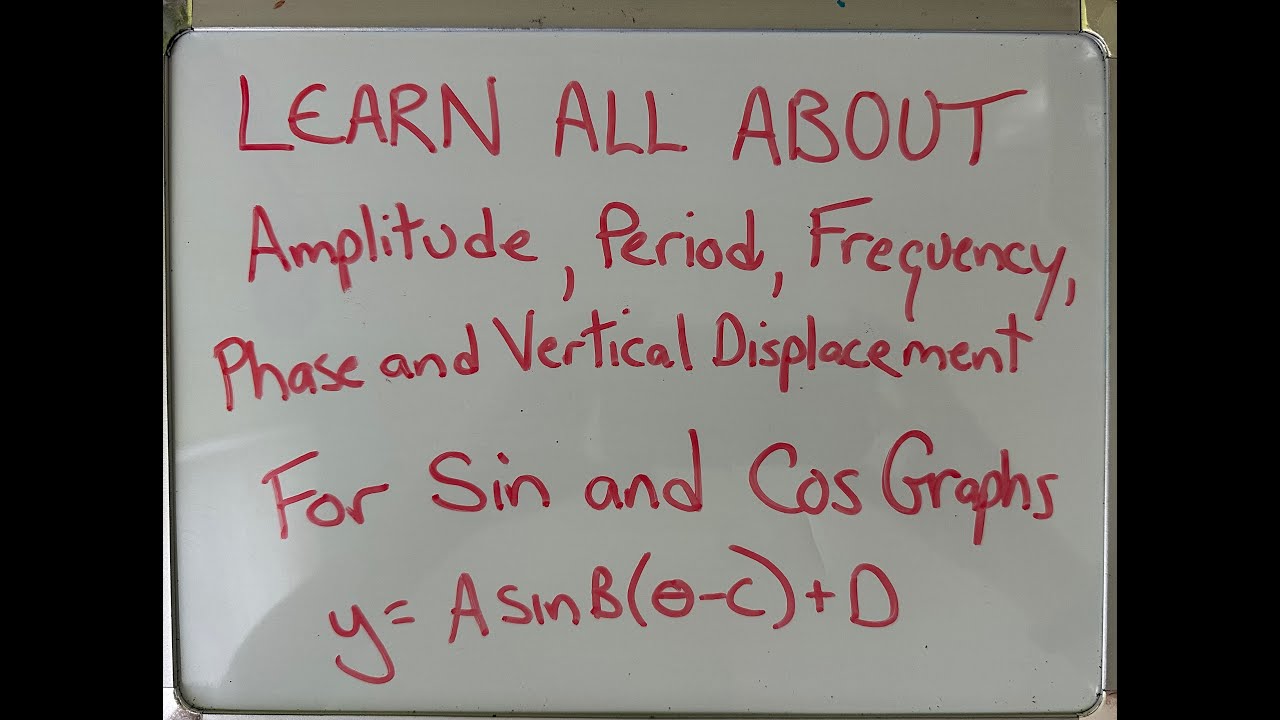 LEARN ALL ABOUT
Amplitude, Period, Frequency,
Phase and Vertical Displacement
For Sin and Cos Graphs
y = A sin B(θ-C) + D